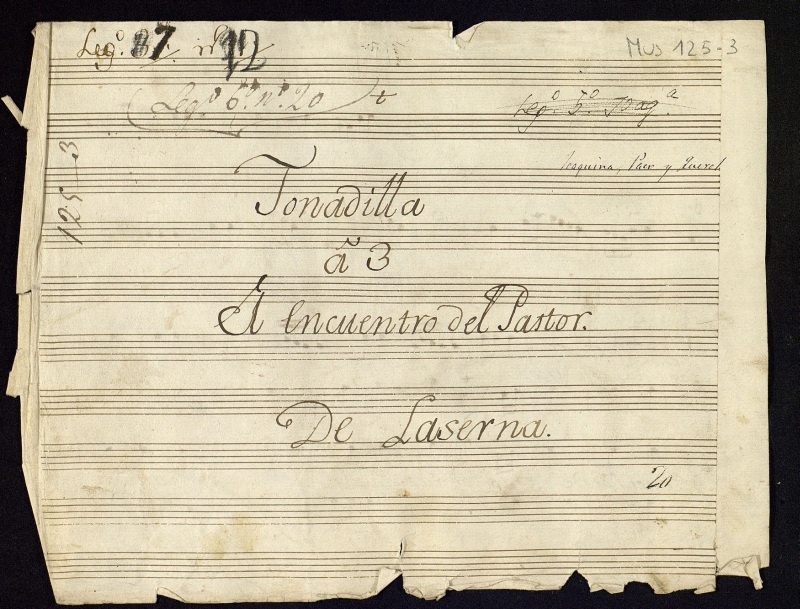 Leg.º 37. nº 12
Mus 125-3
Leg.º 6.º n.º 20 t
Leg.º 5.º
125-3
Joaquina, Paer y Querol
Tonadilla
â 3
El encuentro del Pastor.
De Laserna.
20